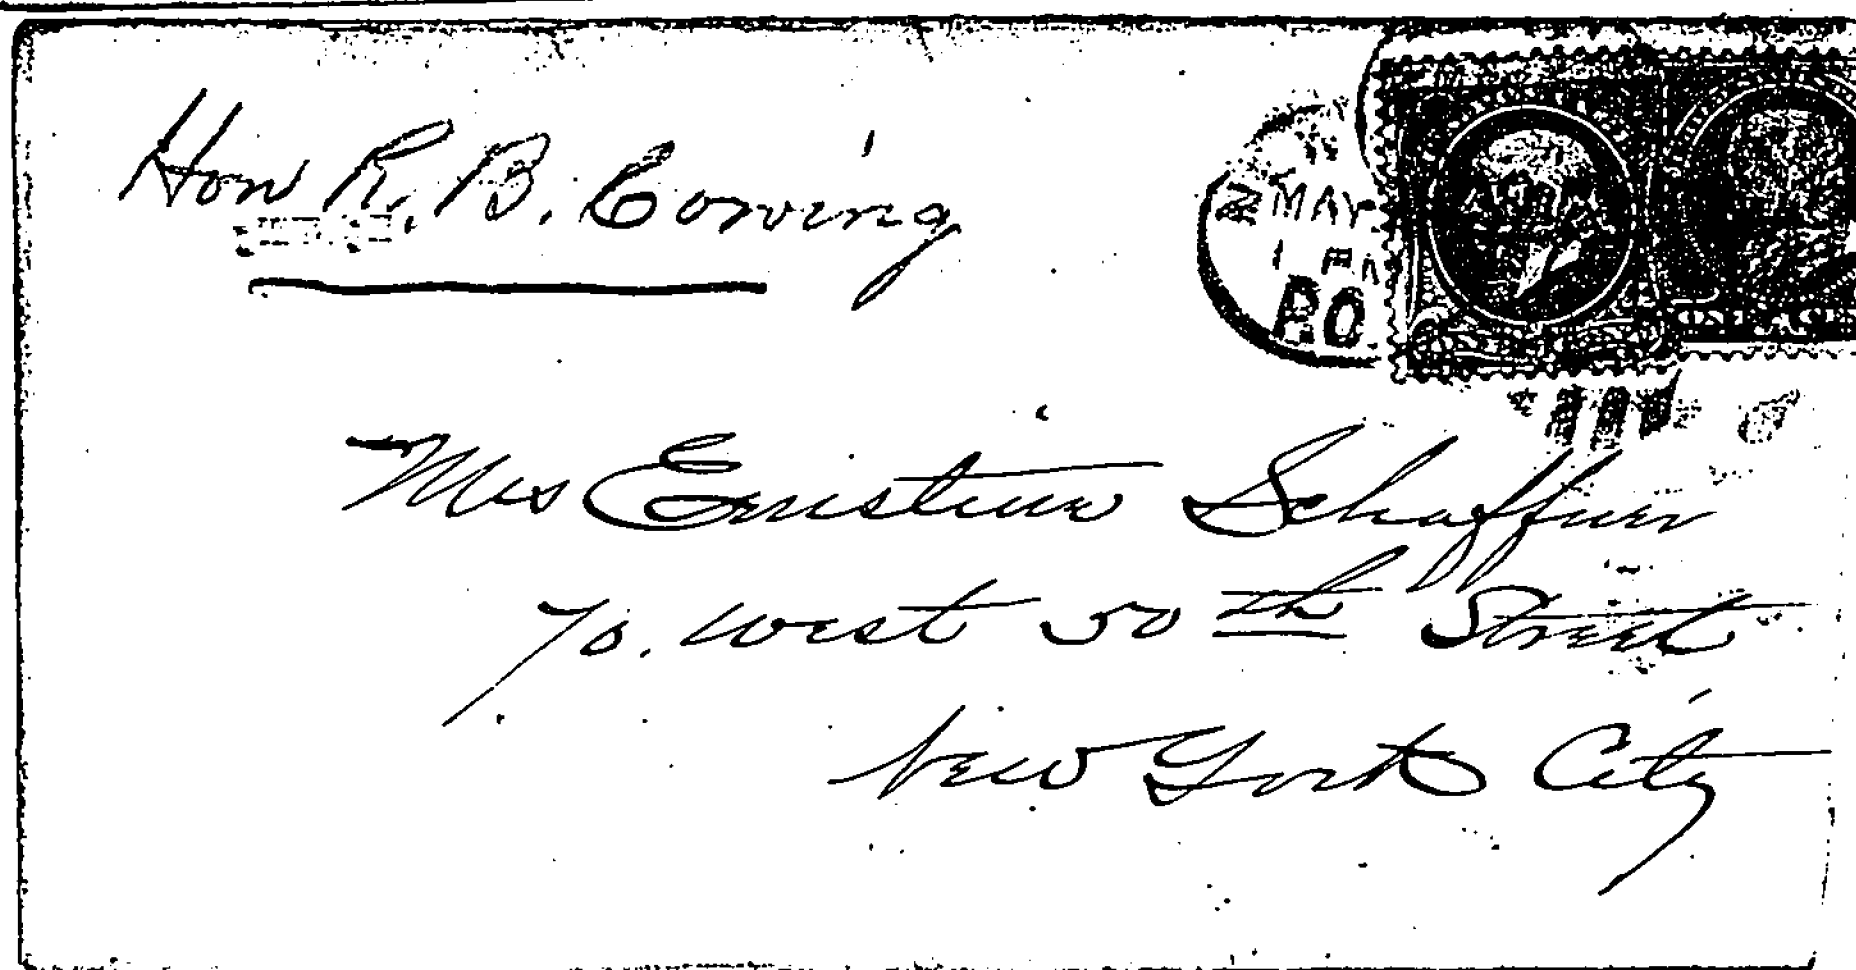 Hon R. B. Cowing
MAY
PO
Mrs Ernstine Schaffner
70. West 50th Street
New York City